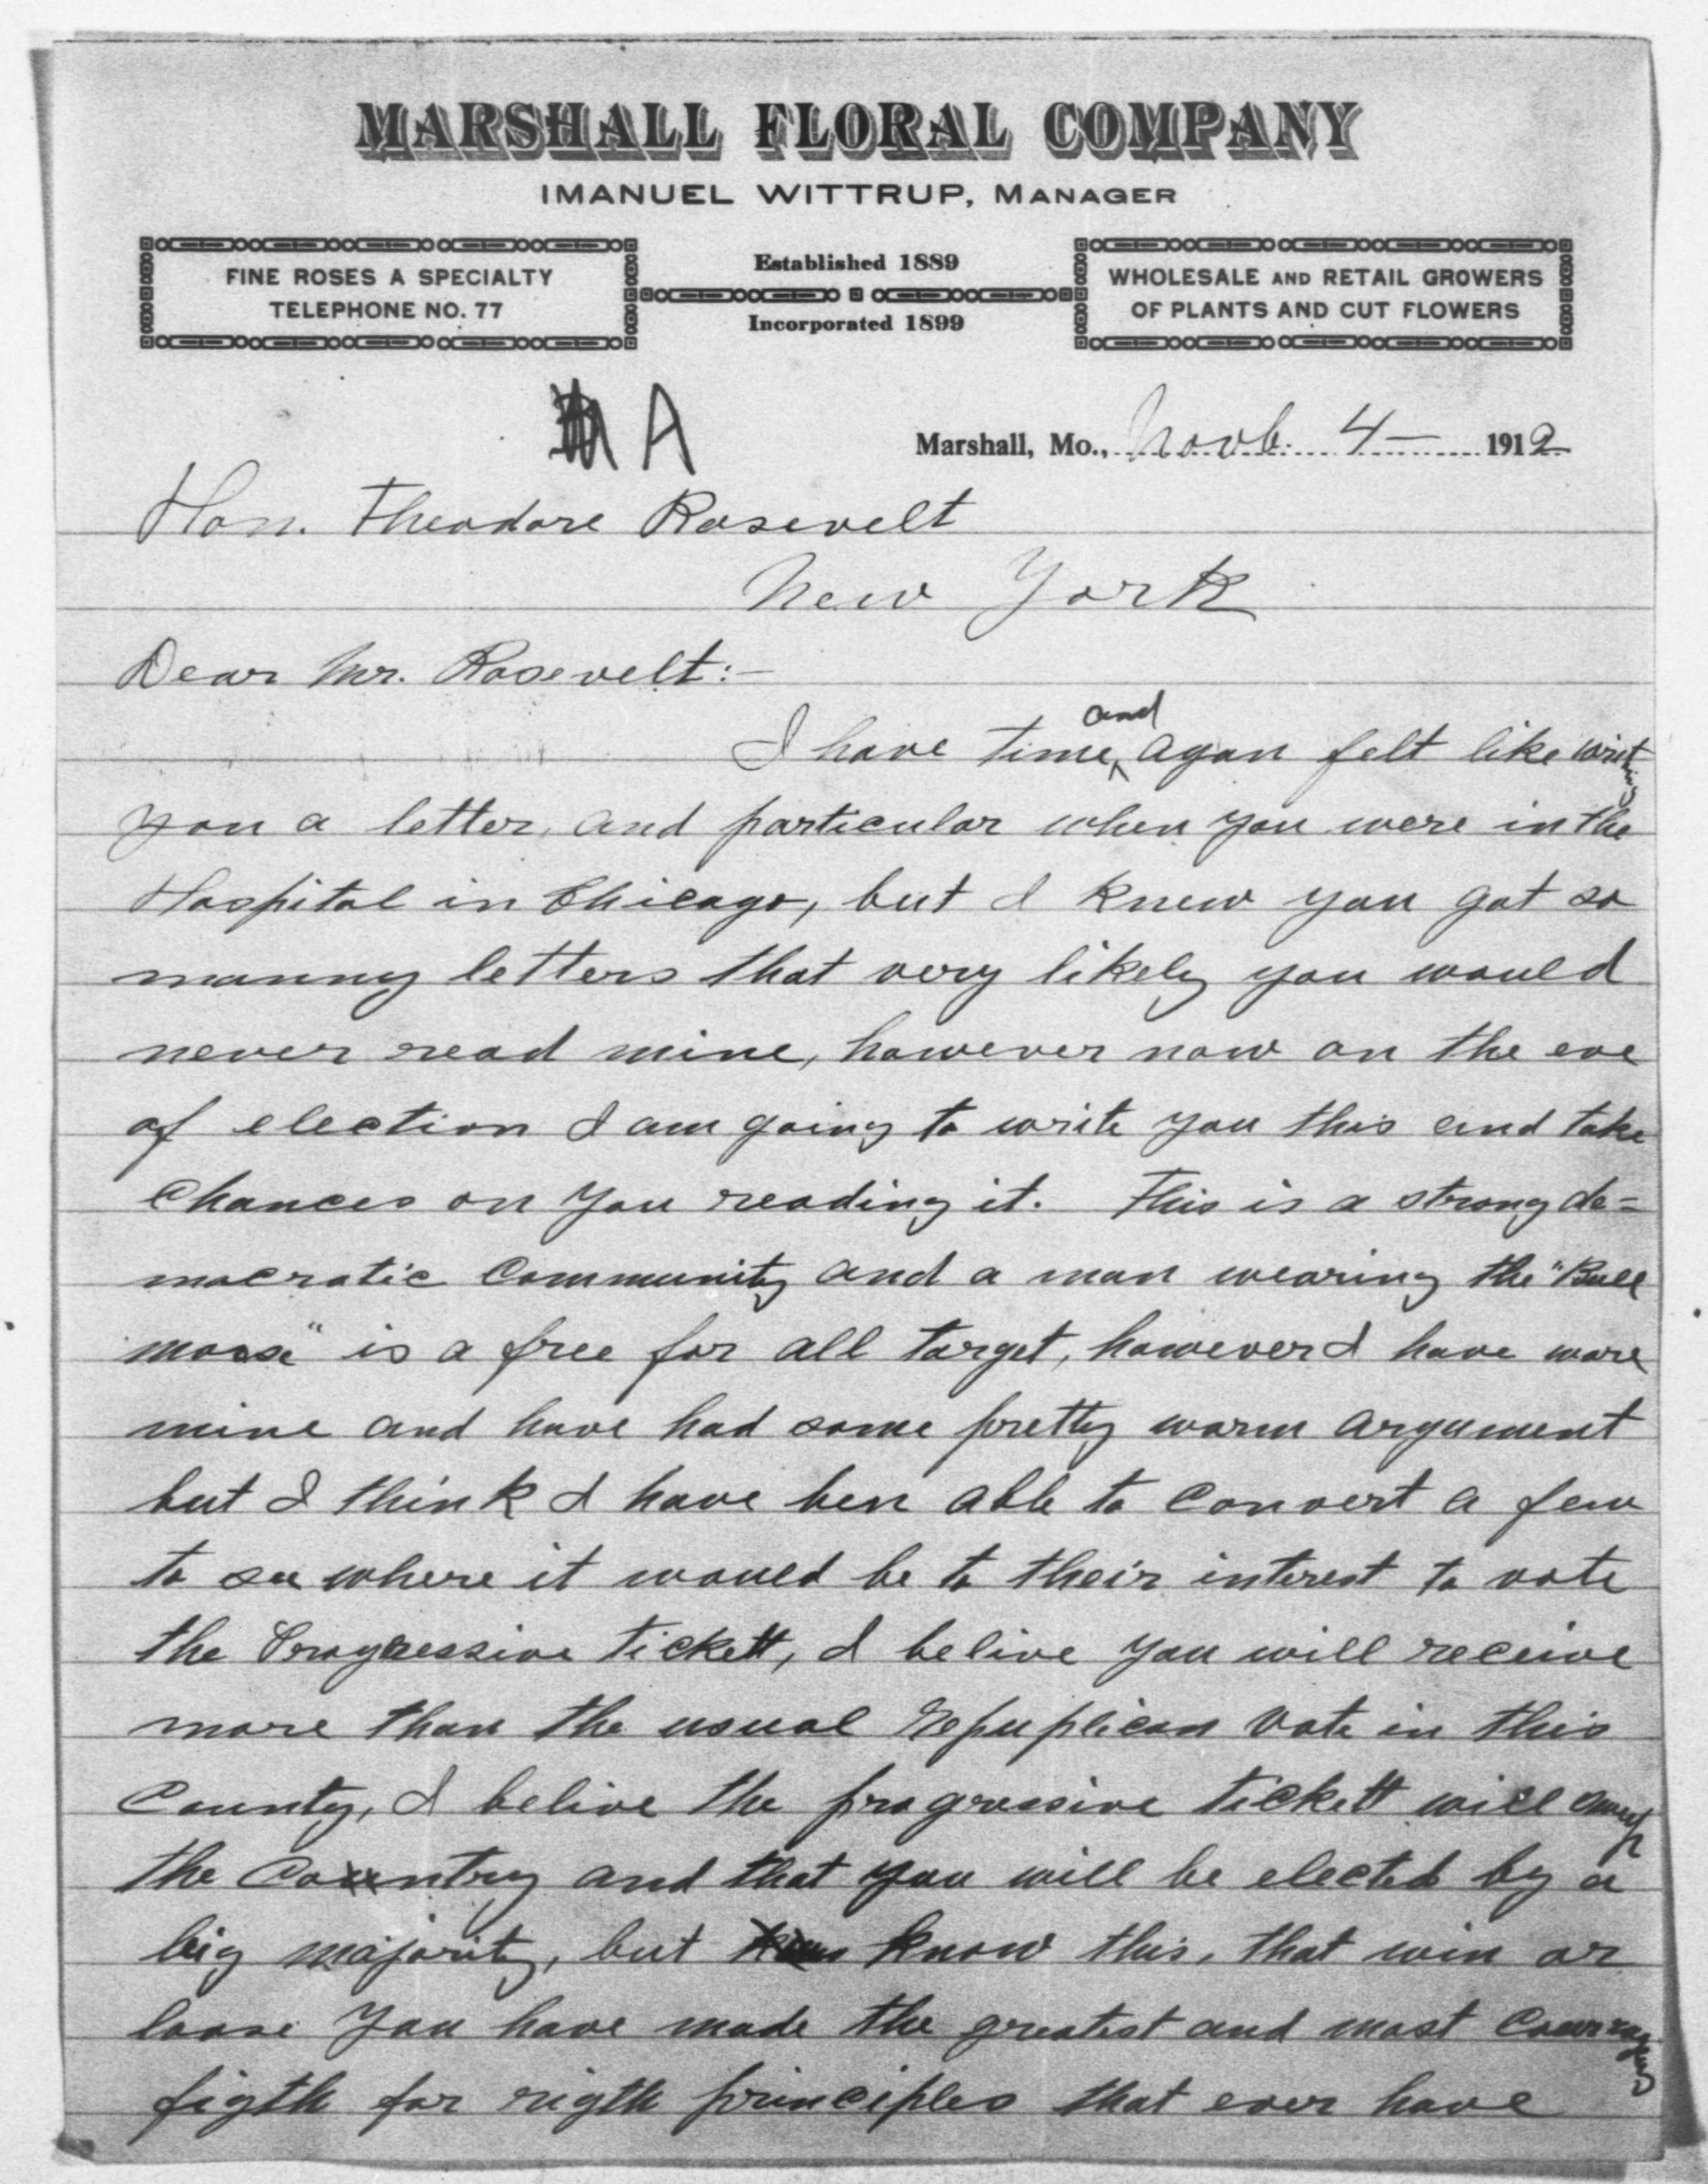 MARSHALL FLORAL COMPANY
IMANUEL WITTRUP, MANAGER
FINE ROSES A SPECIALTY
TELEPHONE NO. 77
Established 1889
Incorporated 1899
WHOLESALE AND RETAIL GROWERS
OF PLANTS AND CUT FLOWERS
A
Marshall, Mo., Novb. 4— 1912
Hon. Theodore Rosevelt
New York
Dear Mr. Rosevelt:-
I have time and agan felt like writing
you a letter, and particular when you were in the
Hospital in Chicago, but I knew you got so
manny letters that very likely you would
never read mine, however now on the eve
of election I am going to write you this and take
chances on you reading it. This is a strong de=
mocratic Community and a man wearing the "Bull
moose" is a free for all target, however I have wore
mine and have had some pretty warm argument
but I think I have ben able to convert a few
to see where it would be to their interest to vote
the Progressive tickett, I belive you will receive
more than the usual Repuplican vote in this
County, I belive the progressive tickett will sweep
the Country and that you will be elected by a
big majority, but know this, that win or
loose you have made the greatest and most
figth for rigth principles that ever have